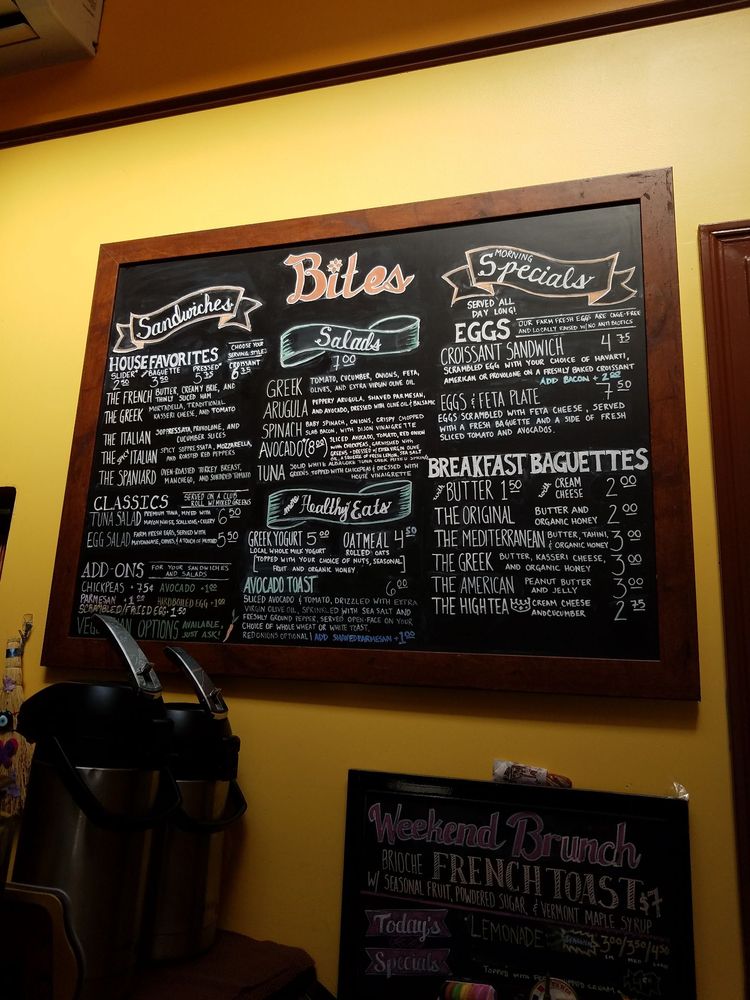 Bites
Sandwiches
HOUSE FAVORITES
CHOOSE YOUR
SERVING STYLE:
SLIDER BAGUETTE PRESSED CROISSANT
2 50 3 50 5 35 6 35
THE FRENCH BUTTER, CREAMY BRIE, AND
THINLY SLICED HAM
THE GREEK MORTADELLA, TRADITIONAL
KASSERI CHEESE, AND TOMATO
THE ITALIAN SOPPRESSATA, PROVOLONE, AND
CUCUMBER SLICES
THE SPICY ITALIAN SPICY SOPRESSATA, MOZZARELLA,
AND ROASTED RED PEPPERS
THE SPANIARD OVEN-ROASTED TURKEY BREAST,
MANCHEGO, AND SUNDRIED TOMATO
CLASSICS SERVED ON A CLUB
ROLL W/ MIXED GREENS
TUNA SALAD PREMIUM TUNA, MIXED WITH
MAYONNAISE, SCALLIONS + CELERY 6 50
EGG SALAD FARM FRESH EGGS, SERVED WITH
MAYONNAISE, CHIVES, & A TOUCH OF MUSTARD 5 50
ADD-ONS FOR YOUR SANDWICHES
AND SALADS
CHICKPEAS + 75¢ AVOCADO +1 00
PARMESAN +1 00 HARDBOILED EGG +1 00
SCRAMBLED/FRIED EGG +1 50
VEGAN OPTIONS AVAILABLE,
JUST ASK!
Salads
7 00
GREEK TOMATO, CUCUMBER, ONIONS, FETA,
OLIVES, AND EXTRA VIRGIN OLIVE OIL
ARUGULA PEPPERY ARUGULA, SHAVED PARMESAN,
AND AVOCADO, DRESSED WITH OLIVE OIL & BALSAMIC
SPINACH BABY SPINACH, ONIONS, CRISPY CHOPPED
SLAB BACON, WITH DIJON VINAIGRETTE
AVOCADO (8 00) SLICED AVOCADO, TOMATO, RED ONION
WITH CHICKPEAS, GARNISHED WITH
GREENS + DRESSED W/ EXTRA VIRGIN OLIVE
OIL, A SQUEEZE OF FRESH LEMON, SEA SALT
TUNA SOLID WHITE ALBACORE TUNA OVER MIXED SPRING
GREENS TOPPED WITH CHICKPEAS & DRESSED WITH
HOUSE VINAIGRETTE
more Healthy Eats
GREEK YOGURT 5 00 OATMEAL 4 50
LOCAL WHOLE MILK YOGURT ROLLED OATS
[TOPPED WITH YOUR CHOICE OF NUTS, SEASONAL
FRUIT AND ORGANIC HONEY]
AVOCADO TOAST 6 00
SLICED AVOCADO & TOMATO, DRIZZLED WITH EXTRA
VIRGIN OLIVE OIL, SPRINKLED WITH SEA SALT AND
FRESHLY GROUND PEPPER, SERVED OPEN-FACE ON YOUR
CHOICE OF WHOLE WHEAT OR WHITE TOAST.
RED ONIONS OPTIONAL | ADD SHAVED PARMESAN +1 00
MORNING
Specials
SERVED ALL
DAY LONG!
EGGS OUR FARM FRESH EGGS ARE CAGE-FREE
AND LOCALLY RAISED W/ NO ANTIBIOTICS
CROISSANT SANDWICH 4 75
SCRAMBLED EGG WITH YOUR CHOICE OF HAVARTI,
AMERICAN OR PROVOLONE ON A FRESHLY BAKED CROISSANT
ADD BACON +2 00
EGGS & FETA PLATE 7 50
EGGS SCRAMBLED WITH FETA CHEESE, SERVED
WITH A FRESH BAGUETTE AND A SIDE OF FRESH
SLICED TOMATO AND AVOCADOS.
BREAKFAST BAGUETTES
with BUTTER 1 50 with CREAM
CHEESE 2 00
THE ORIGINAL BUTTER AND
ORGANIC HONEY 2 00
THE MEDITERRANEAN BUTTER, TAHINI,
& ORGANIC HONEY 3 00
THE GREEK BUTTER, KASSERI CHEESE,
AND ORGANIC HONEY 3 00
THE AMERICAN PEANUT BUTTER
AND JELLY 3 00
THE HIGH TEA CREAM CHEESE
AND CUCUMBER 2 75
Weekend Brunch
BRIOCHE FRENCH TOAST $7
W/ SEASONAL FRUIT, POWDERED SUGAR & VERMONT MAPLE SYRUP
Today's
Specials
LEMONADE 3 00/3 50/4 50
SM MED
TOPPED WITH